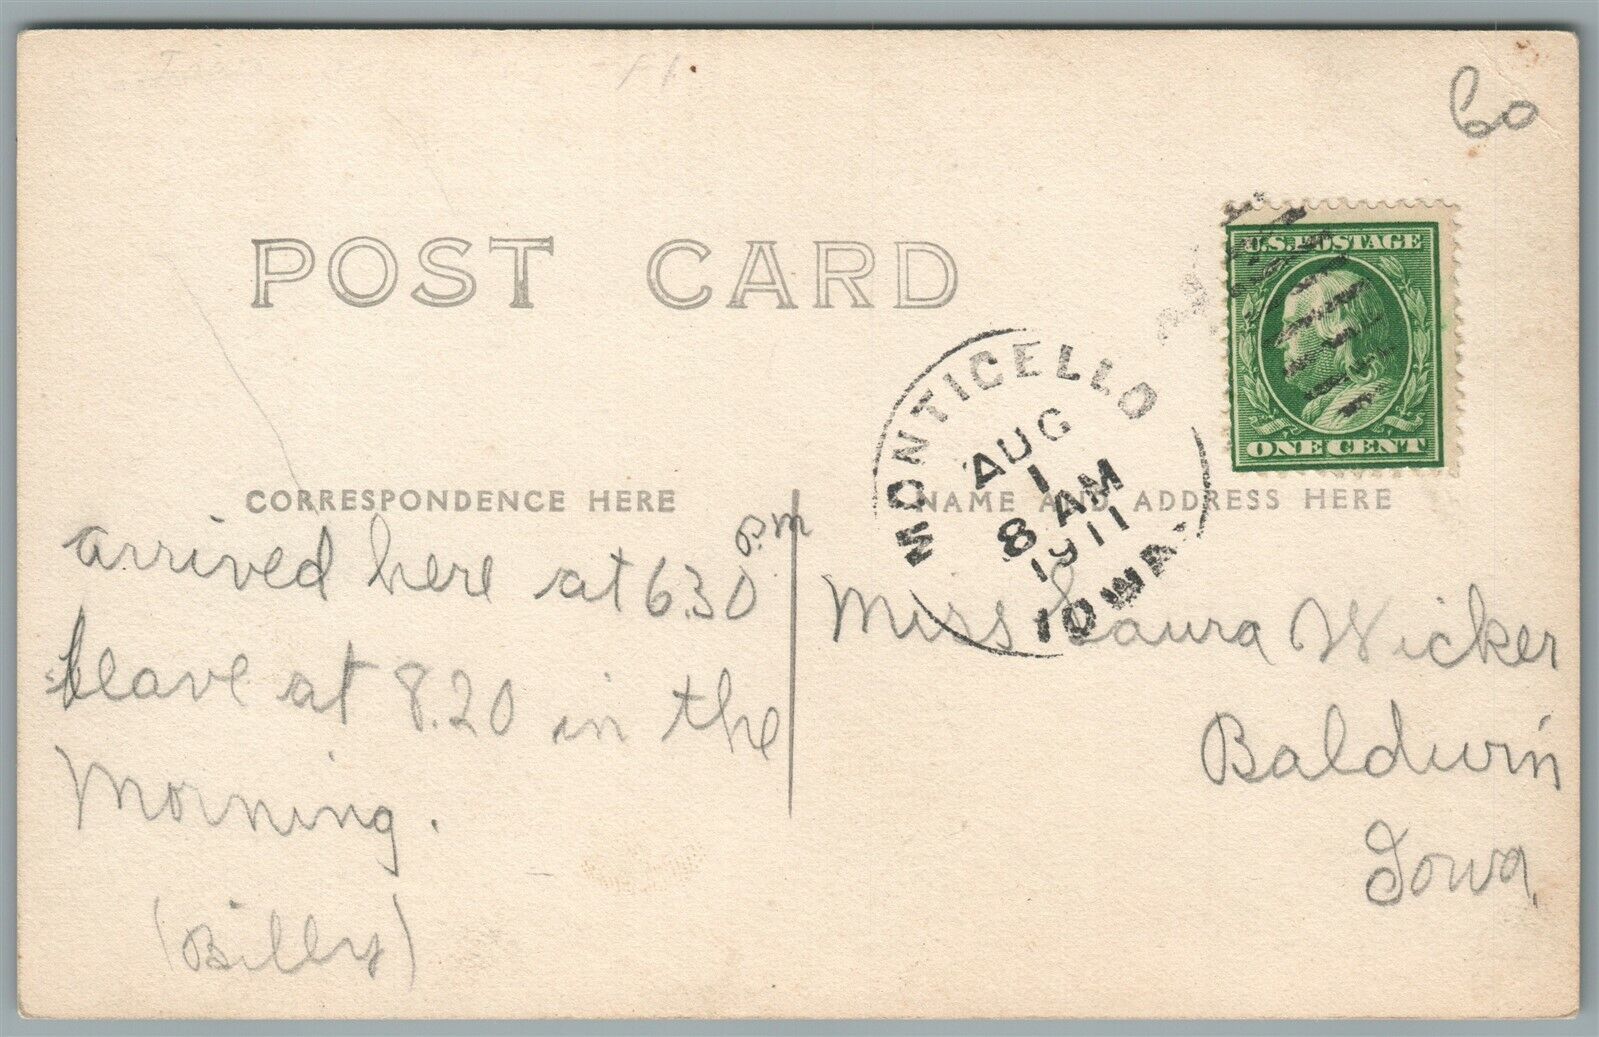 60
POST CARD
U.S. POSTAGE
ONE CENT
MONTICELLO
AUG
1
8 AM
1911
IOWA.
CORRESPONDENCE HERE
NAME AND ADDRESS HERE
arrived here at 6.30 P.M
leave at 8.20 in the
Morning.
(Billy)
Miss Laura Wicker
Baldwin
Iowa.